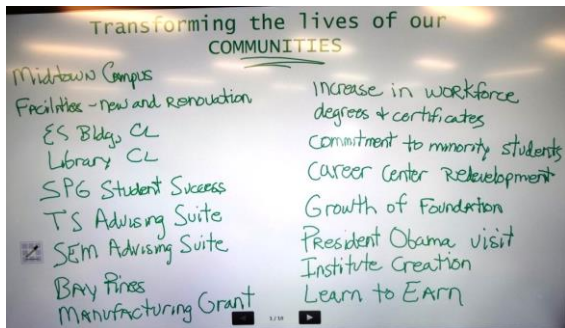 Transforming the lives of our
COMMUNITIES
Midtown Campus
Facilities - new and Renovation
ES Bldg, CL
Library CL
SPG Student Success
TS Advising Suite
SEM Advising Suite
Bay Pines
Manufacturing Grant
Increase in workforce
degrees + certificates
Commitment to minority students
Career Center Redevelopment
Growth of Foundation
President Obama visit
Institute Creation
Learn to Earn